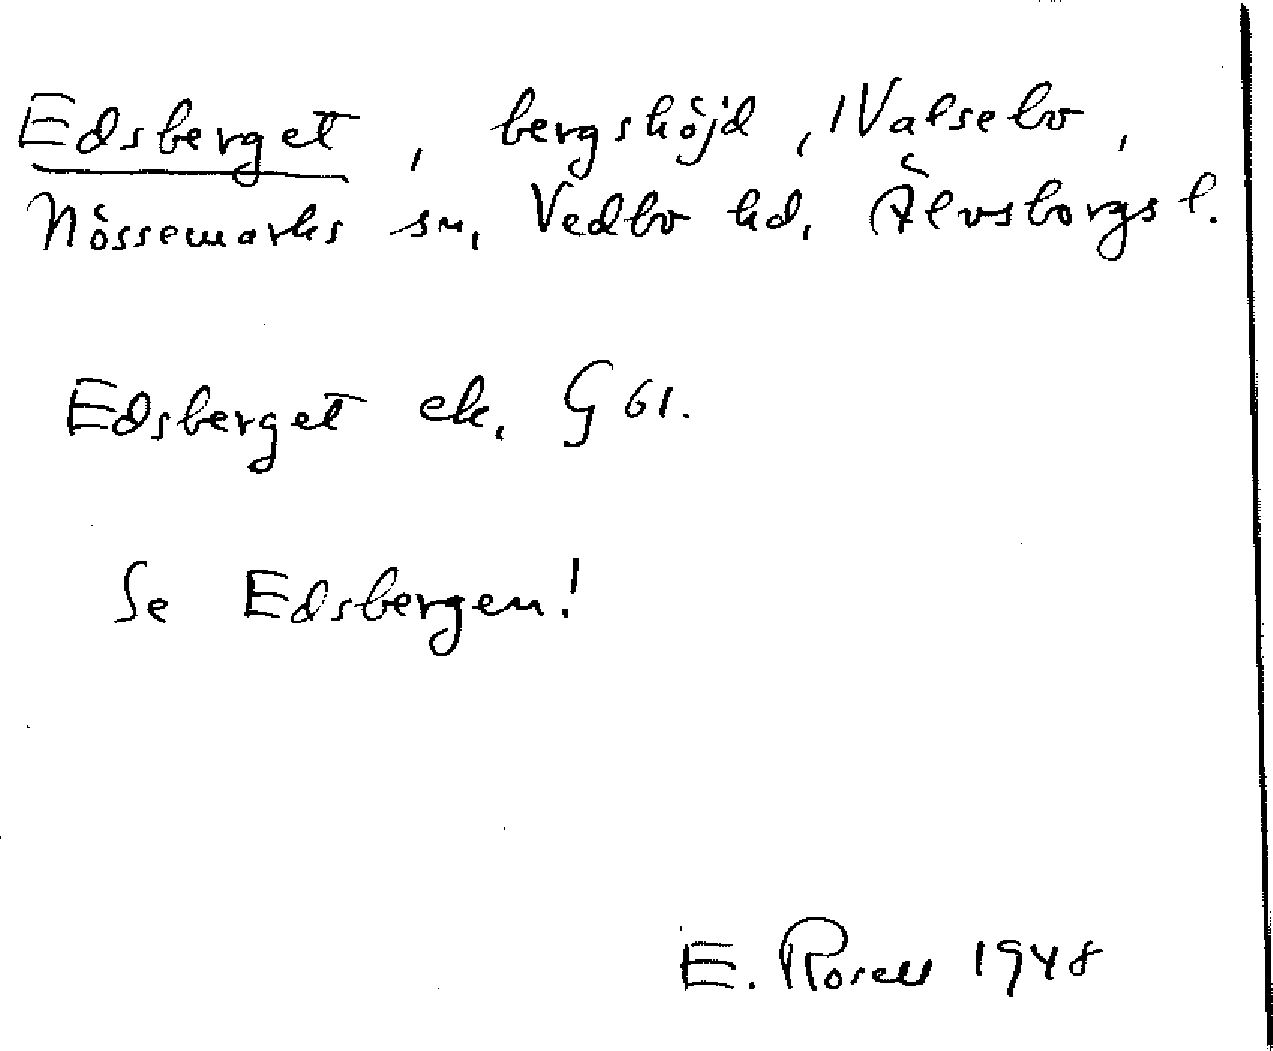 Edsberget, bergshöjd, 1 Valsebo,
Nössemarks sn, Vedbo hd, Älvsborgs l.
Edsberget ek. G 61.
Se Edsbergen!
E. Rosell 1948